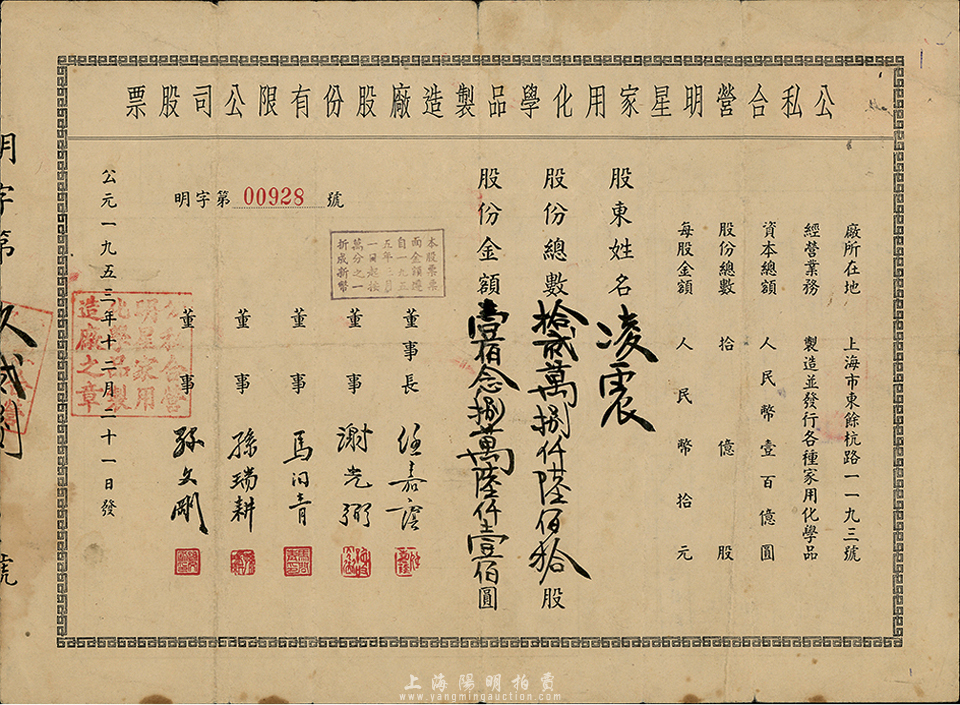 公私合營明星家用化學品製造廠股份有限公司股票
廠所在地 上海市東餘杭路一一九三號
經營業務 製造並發行各種家用化學品
資本總額 人民幣壹百億圓
股份總數 拾億股
每股金額 人民幣拾元
股東姓名 凌震
股份總數 拾貳萬捌仟陸佰拾股
股份金額 壹佰念捌萬陸仟壹佰圓
明字第 00928 號
本股票票
面金額遵
自一九五
五年三月
一日起按
萬分之一
折成新幣
董事長 任嘉
董事 謝光弼
董事 馬炯青
董事 孫瑞耕
董事 孫文剛
公元一九五三年十二月二十一日發
公私合營
明星家用
化學品製
造廠之章
明字第
號
上海陽明拍賣
www.yangmingauction.com